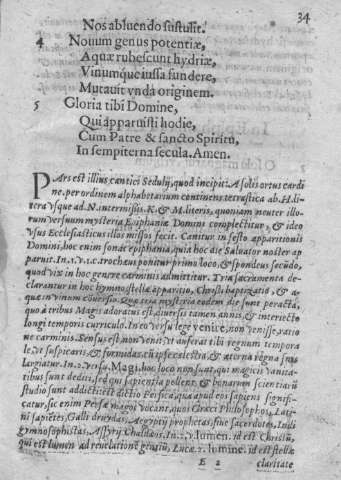 34
Nos abluendo sustulit.
4 Nouum genus potentiæ,
Aquæ rubescunt hydriæ,
Vinumque iussa fundere,
Mutauit vnda originem.
5 Gloria tibi Domine,
Qui apparuisti hodie,
Cum Patre & sancto Spiritu,
In sempiterna secula. Amen.
PArs est illius cantici Sedulij, quod incipit: A solis ortus cardi
ne. per ordinem alphabetarium continens tetrastica ab. H. li
tera vsque ad N. intermissis. K. & M. literis, quoniam neuter illo
rum versuum mysteria Epiphaniæ Domini complectitur, & ideo
vsus Ecclesiasticus illos missos facit. Canitur in festo apparitionis
Domini, hoc enim sonat epiphania, quia hoc die Saluator noster ap
paruit. In. 1. v. t. c. trocheus ponitur primo loco, & spondeus secũdo,
quod vix in hoc genere carminis admittitur. Tria sacramenta de
clarantur in hoc hymno stellæ apparitio, Christi baptizatio, & a
quæ in vinum cõuersio. Quæ tria mysteria eodem die sunt peracta,
quo à tribus Magis adoratus est, diuersis tamen annis, & interiecto
longi temporis curriculo. In eo versu lege venire, non venisse, ratio
ne carminis. Sensus est non venit vt auferat tibi regnum tempora
le, vt suspicaris, & formidas, cũ ipse cælestia, & æterna regna suis
largiatur. In. 2. versu. Magi, hoc loco non sunt, qui magicis vanita-
tibus sunt dediti, sed qui sapientia pollent, & bonarum scientiarũ
studio sunt addicti: est dictio Persica, quæ apud eos sapiens signifi-
catur, sic enim Persæ magos vocant, quos Græci Philosophos, Lati-
ni sapiẽtes, Galli druydas, Aegyptij prophetas, siue sacerdotes, Indi
gymnosophistas, Assyrij Chaldæos. In. 2. v. lumen. id est Christũ,
qui est lumen ad reuelationẽ gentiũ, Lucæ. 2. lumine. id est stellæ
E 2 claritate